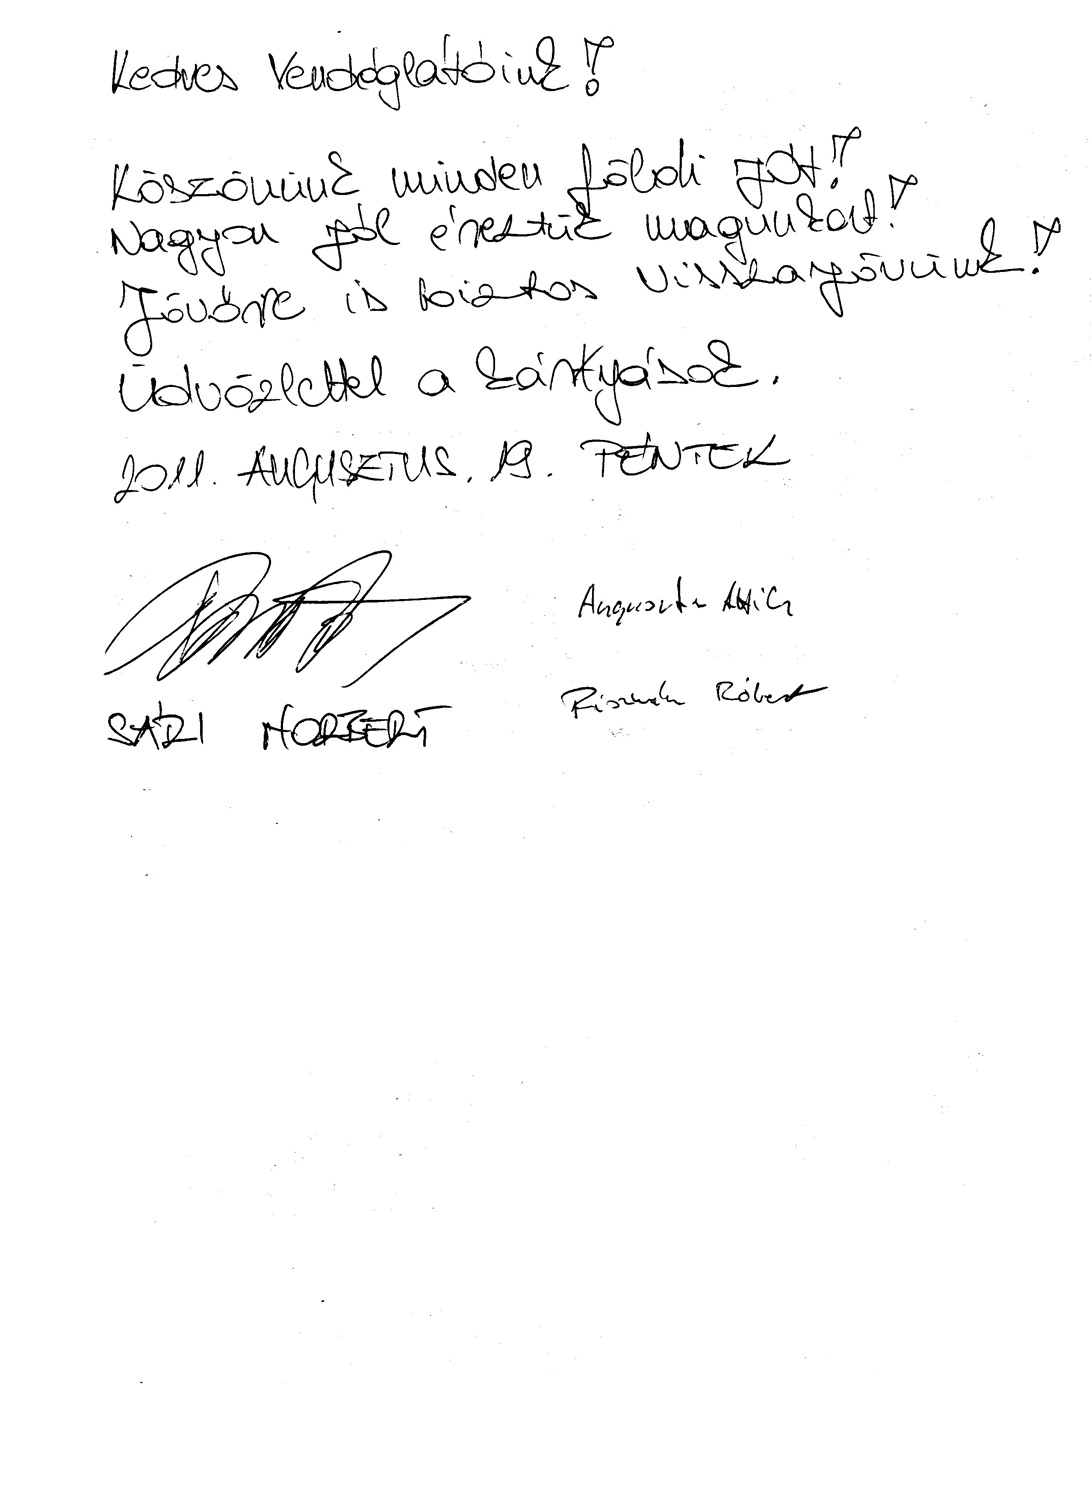 Kedves Vendéglátóink!
Köszönünk minden földi jót!
Nagyon jól éreztük magunkat!
Jövőre is biztos visszajövünk!
Üdvözlettel a kártyások.
2011. AUGUSZTUS. 19. PÉNTEK
Auguszta Attila
Róbert
SÁRI NORBERT